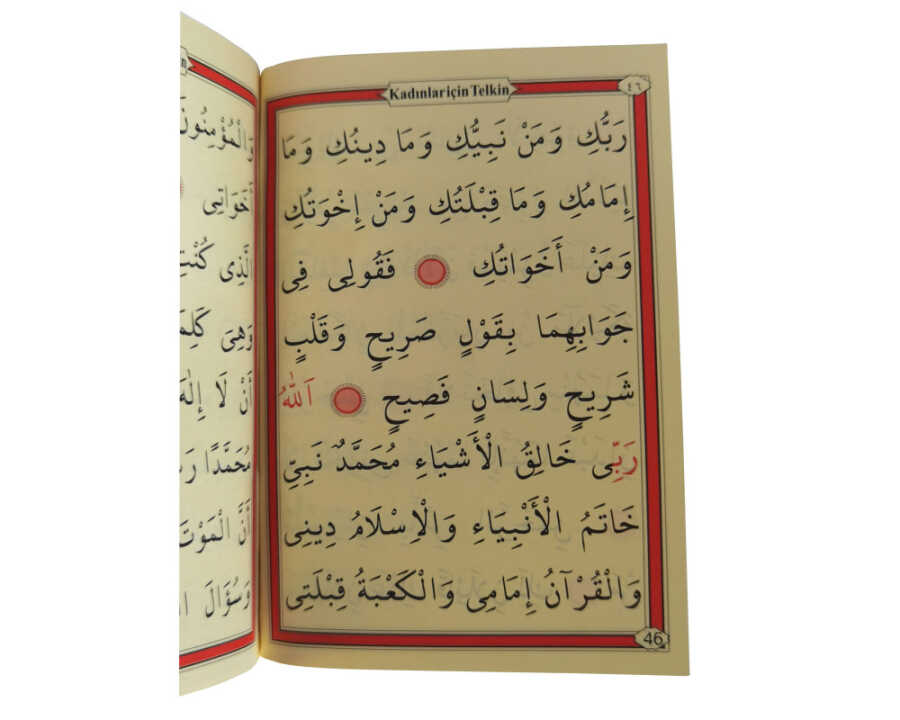 Kadınlar için Telkin
٤٦
رَبُّكِ وَمَنْ نَبِيُّكِ وَمَا دِينُكِ وَمَا
إِمَامُكِ وَمَا قِبْلَتُكِ وَمَنْ إِخْوَتُكِ
وَمَنْ أَخَوَاتُكِ فَقُولِى فِى
جَوَابِهِمَا بِقَوْلٍ صَرِيحٍ وَقَلْبٍ
شَرِيحٍ وَلِسَانٍ فَصِيحٍ اَللّٰهُ
رَبِّى خَالِقُ الْأَشْيَاءِ مُحَمَّدٌ نَبِيِّى
خَاتَمُ الْأَنْبِيَاءِ وَالْاِسْلَامُ دِينِى
وَالْقُرْآنُ إِمَامِى وَالْكَعْبَةُ قِبْلَتِى
46
وَالْمُؤْمِنُونَ
أَخَوَاتِى
الَّذِى كُنْتِ
وَهِىَ
أَنْ لَا إِلٰهَ
مُحَمَّدًا
أَنَّ الْمَوْتَ
وَسُؤَالَ